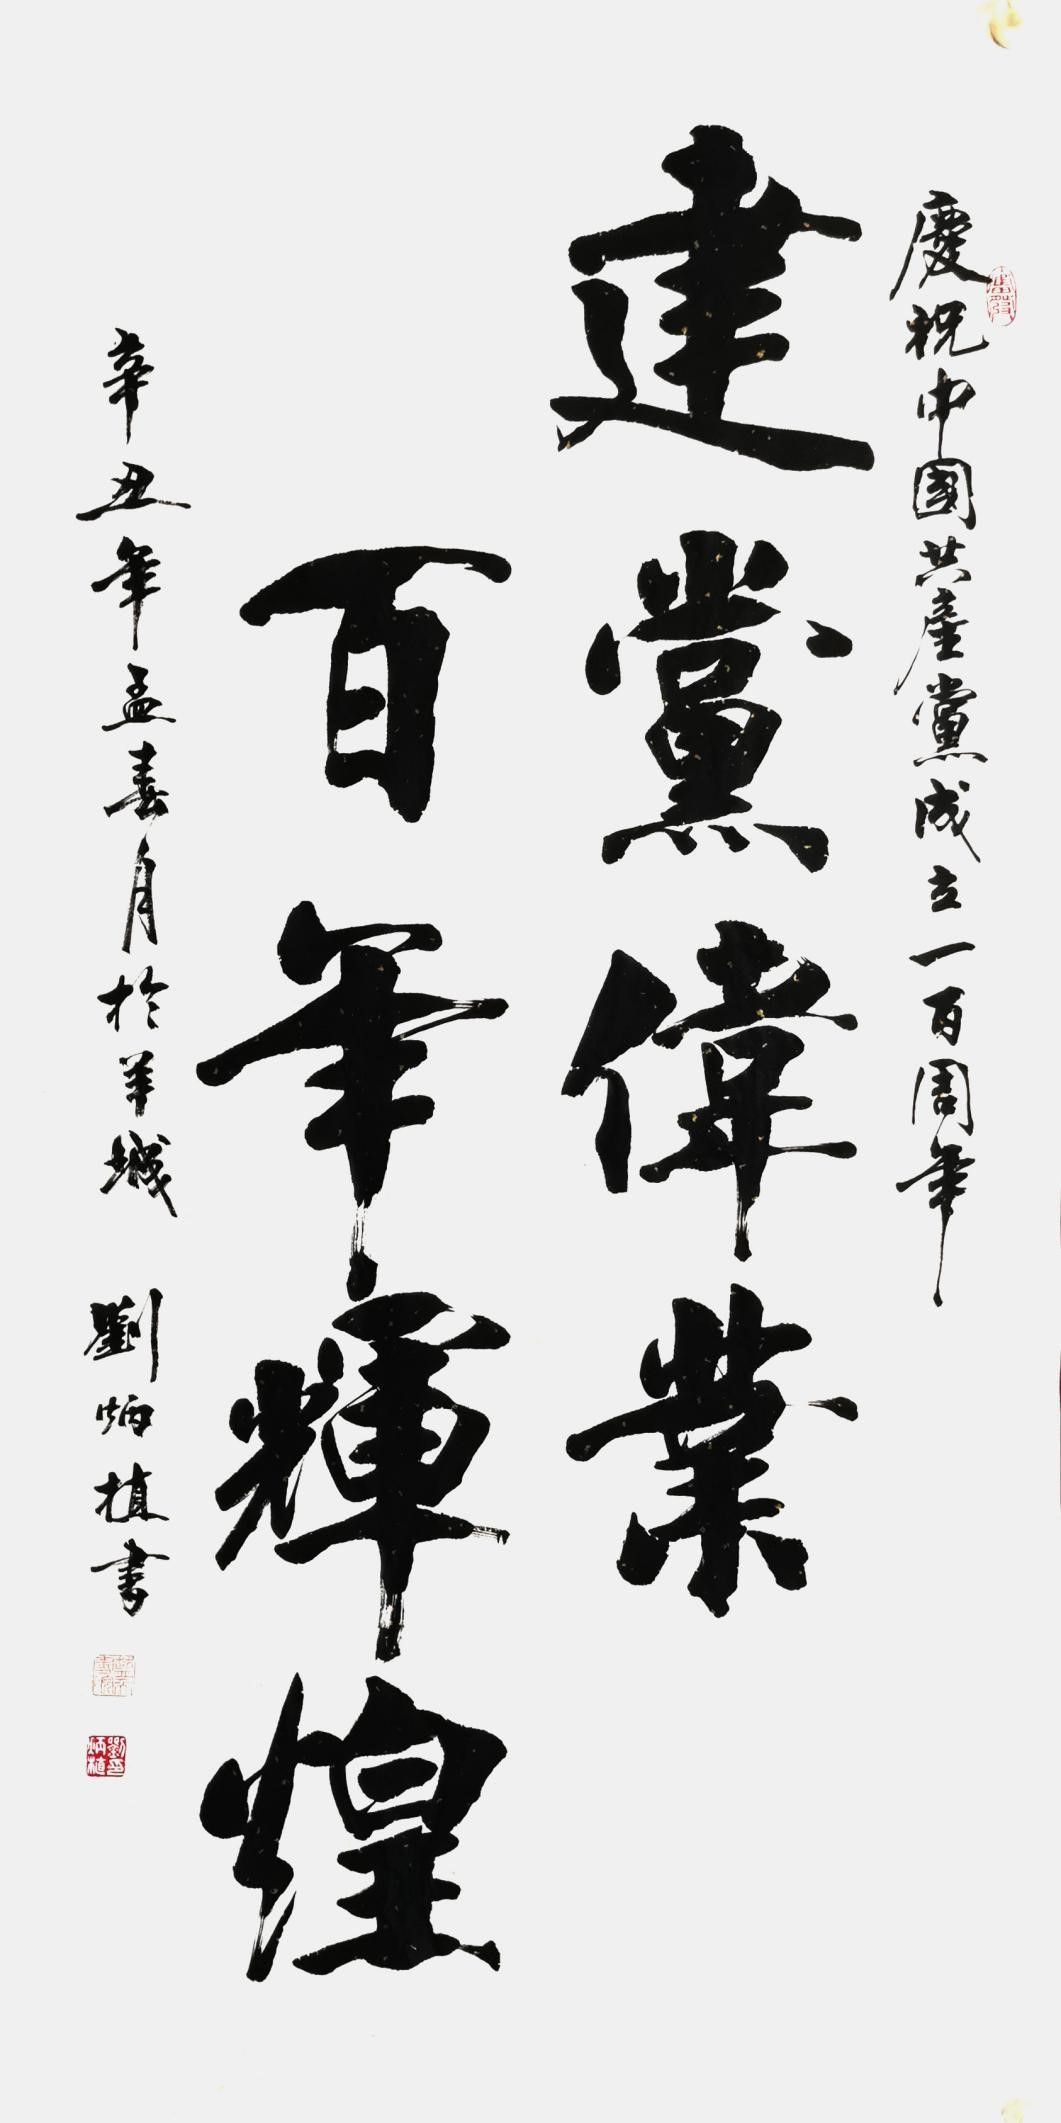 慶祝中國共產黨成立一百周年
建黨偉業
百年輝煌
辛丑年孟春月於羊城 劉炳植書
劉炳植印